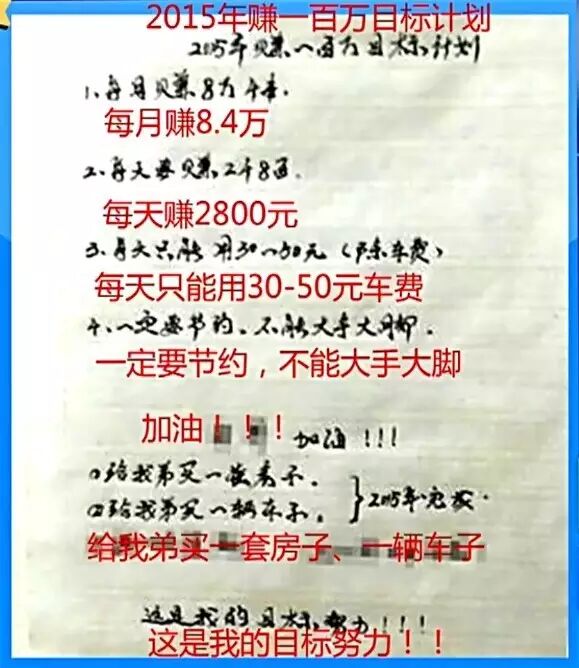 2015年赚一百万目标计划
2015年赚一百万目标计划
1、每月赚8万4千.
每月赚8.4万
2、每天要赚2千8百.
每天赚2800元
3、每天只能用30~50元(除车费)
每天只能用30-50元车费
4、一定要节约、不能大手大脚.
一定要节约，不能大手大脚
加油！！！
加油!!!
①给我弟买一套房子.
②给我弟买一辆车子. } 2015年完成.
给我弟买一套房子、一辆车子
这是我的目标努力!!!!
这是我的目标努力！！